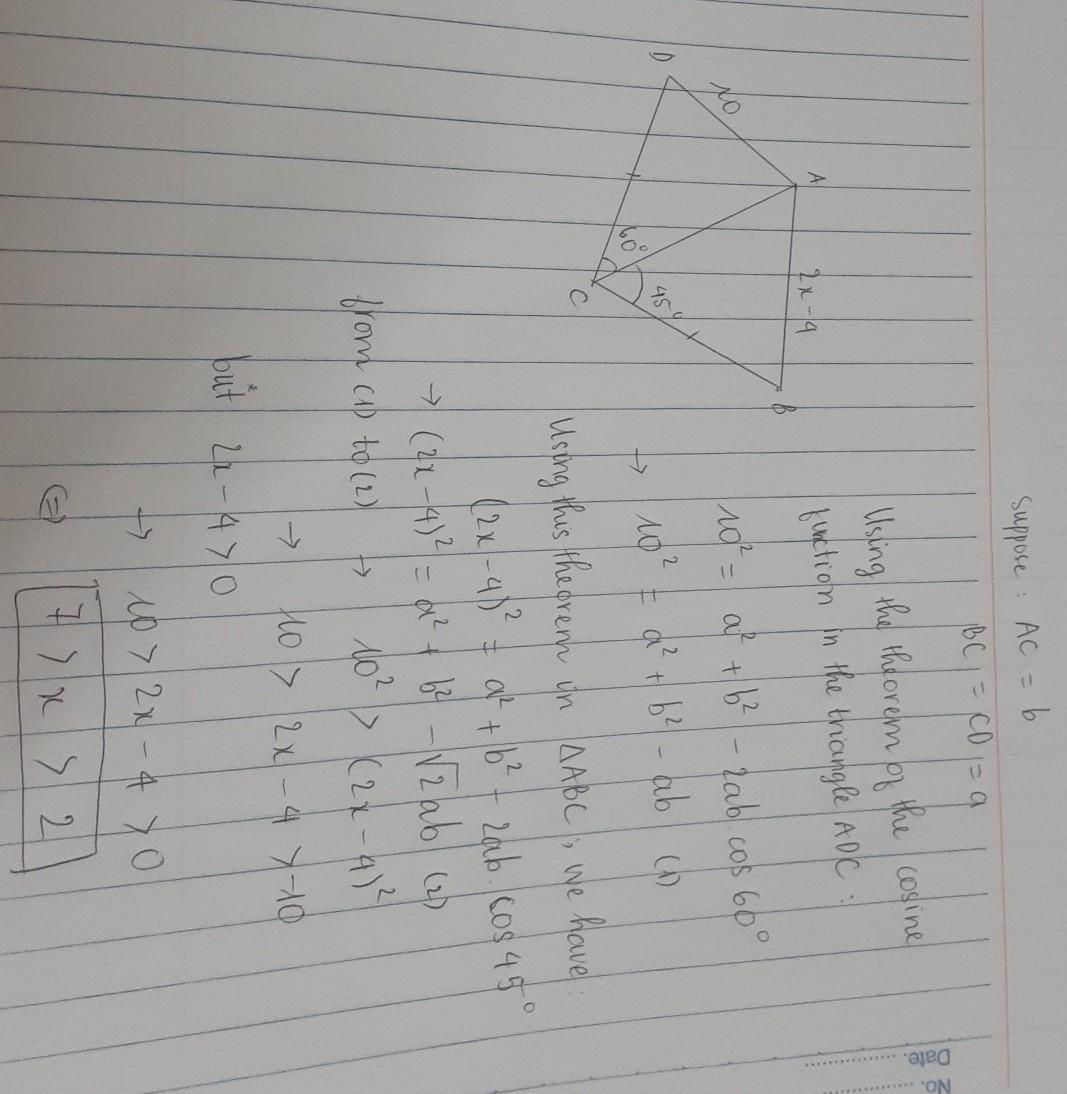 No. ..................
Date. ..................
Suppose : AC = b
BC = CD = a
Using the theorem of the cosine
function in the triangle ADC :
10² = a² + b² - 2ab.cos 60°
→ 10² = a² + b² - ab (1)
Using this theorem in ΔABC, we have:
(2x - 4)² = a² + b² - 2ab.cos 45°
→ (2x - 4)² = a² + b² - √2 ab (2)
from (1) to (2) → 10² > (2x - 4)²
→ 10 > 2x - 4 > -10
but 2x - 4 > 0
→ 10 > 2x - 4 > 0
(=) 7 > x > 2
A
2x - 4
B
10
D
60°
45°
C